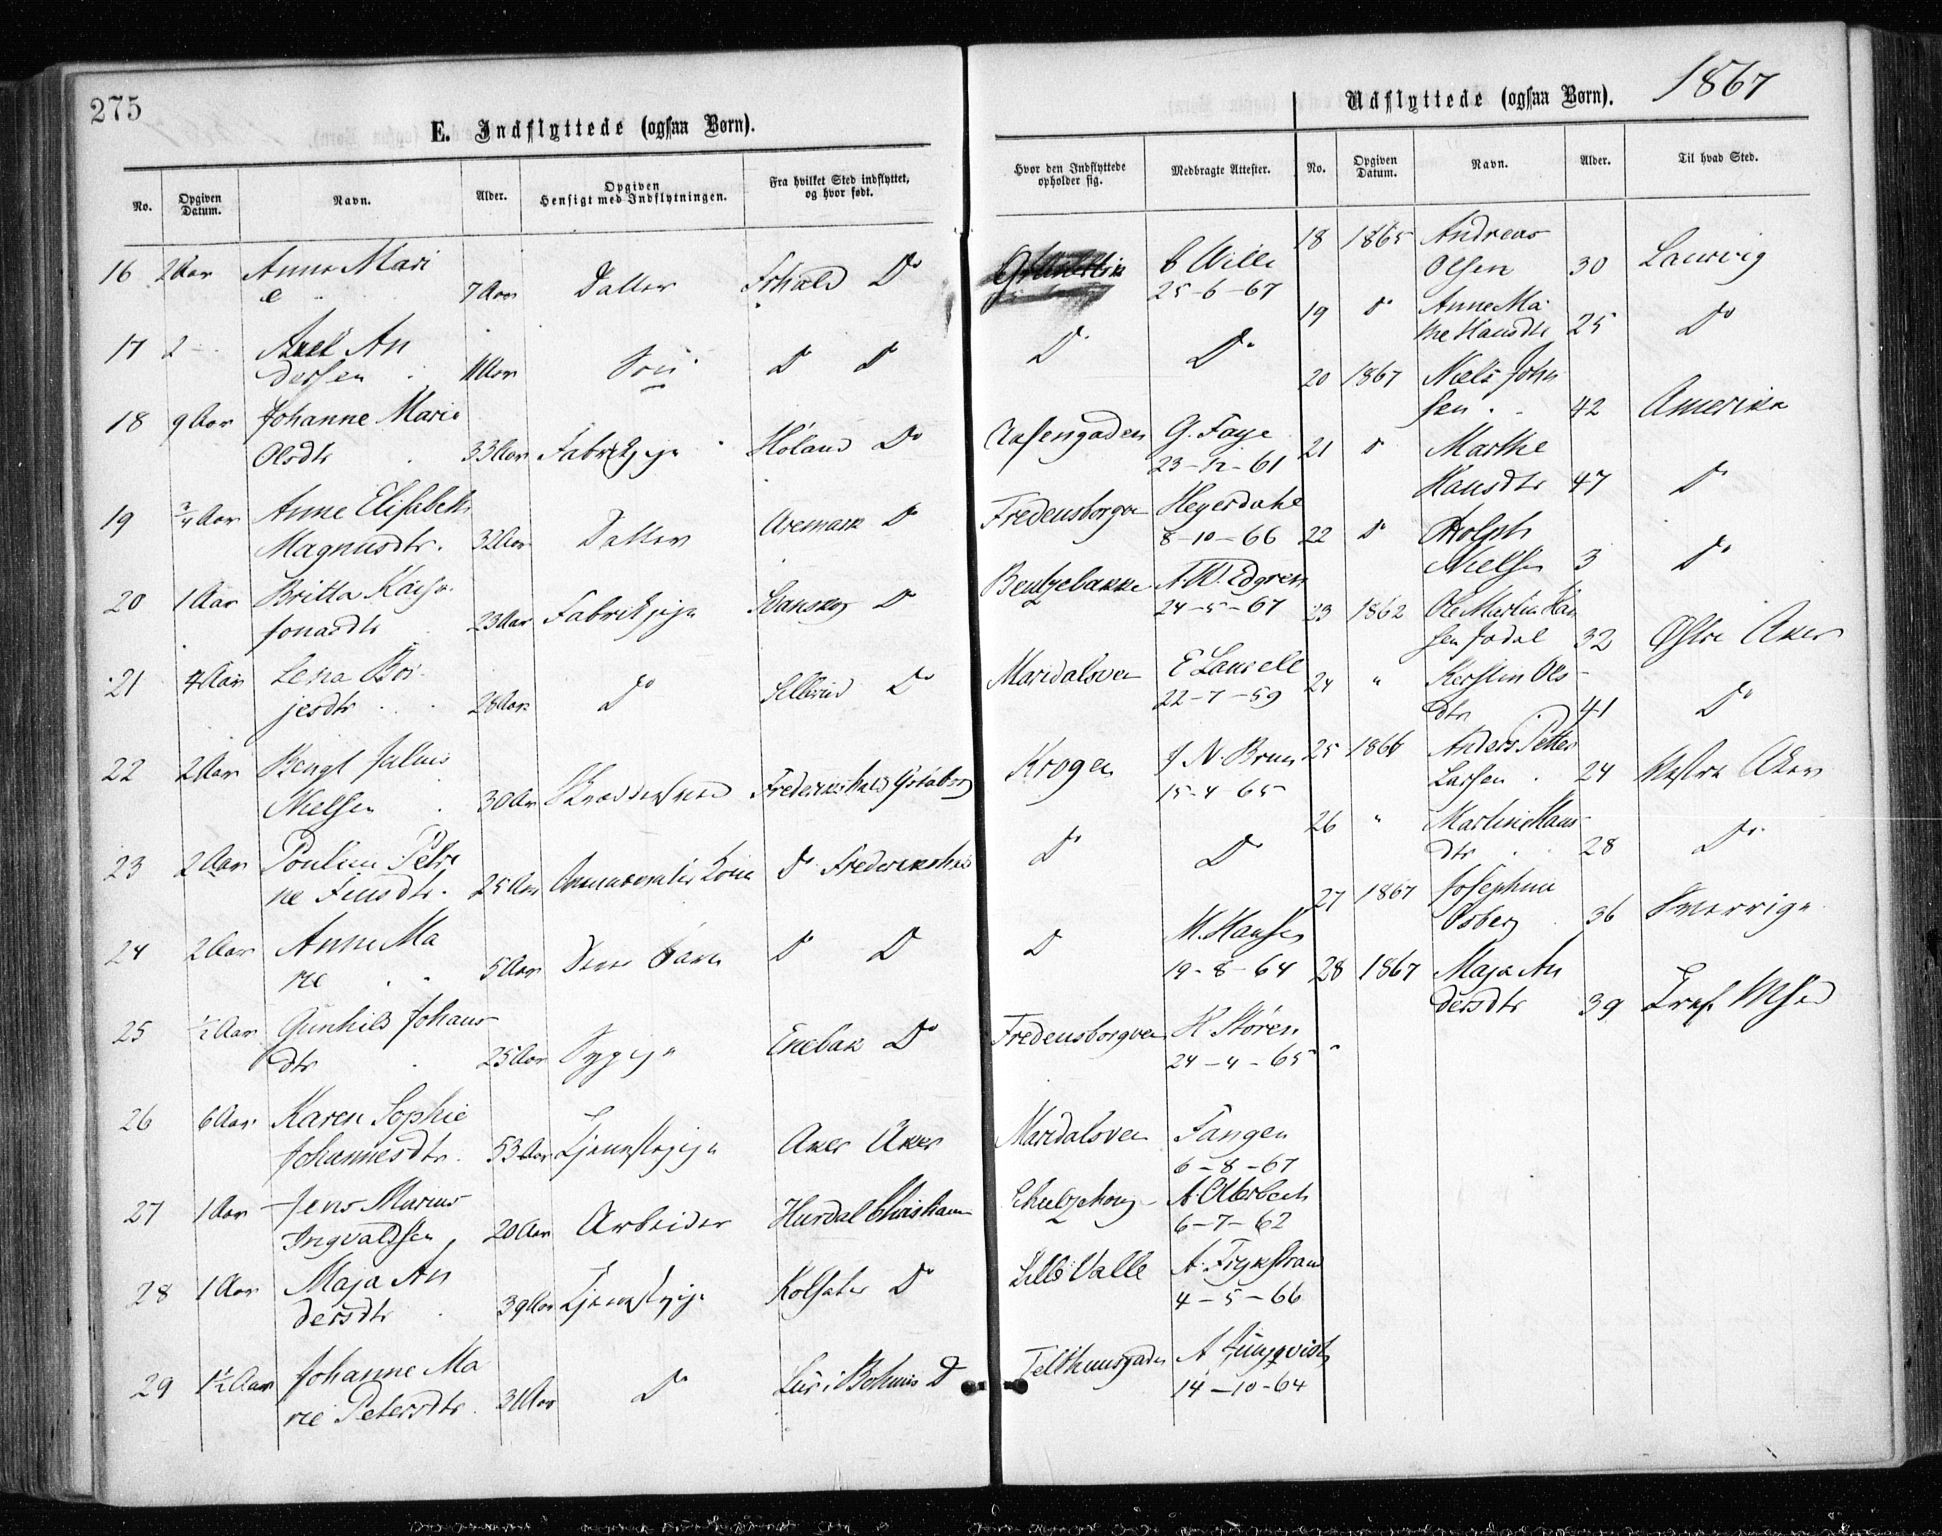 275
1867
E. Indflyttede (ogsaa Børn).
Udflyttede (ogsaa Børn).
No. Opgiven Datum. Navn. Alder. Opgiven Hensigt med Indflytningen. Fra hvilket Sted indflyttet, og hvor født. Hvor den Indflyttede opholder sig. Medbragte Attester.
16 2 Aar Anne Mari
e 7 Aar Datter D°
25-6-67
17 2 Axel An
dersen 11 Aar Søn D° D° D° D°
18 9 Aar Johanne Marie
Olsdtr 33 Aar Fabrikpige Høland D° G. Faye
23-12-61
19 3/4 Aar Anne Elisabeth
Magnusdtr. 32 Aar Datter Aremark D° Fredensborgve Heyerdahl
8-10-66
20 1 Aar Britta Kajsa
Jonasdtr 23 Aar Fabrikpige D° Bentzebakke A.W. Edgren
24-5-67
21 4 Aar Lena Bør
jesdtr 28 Aar D° D° Maridalsvei
22-7-59
22 2 Aar Bengt Julius
Nielsen 30 Aar Skræddersvend Frederikshald Gøtaborg Krogen J N. Brun
15-4 65
23 2 Aar Pouline Petri
ne Finsdtr. 25 Aar Kone D° Frederikshald D° D°
24 2 Aar Anne Ma
rie 5 Aar Deres Barn D° D° D° M. Hansen
19-8-64
25 1/2 Aar Gunhild Johans
dtr 25 Aar Sypige Enebak D° Fredensborgvei H Støren
24-4-65
26 6 Aar Karen Sophie
Johannesdtr. 53 Aar Tjenestepige Aker Aker Maridalsvei Fangen
6-8-67
27 1 Aar Jens Marius
Ingvaldsen 20 Aar Arbeider Hurdal Christiania A. Otterbech
6-7-62
28 1 Aar Maja An
dersdtr 39 Aar Tjenestepige D° Lille Valle A. Frykstrand
4-5-66
29 1 1/2 Aar Johanne Ma
rie Petersdtr. 31 Aar D° D° Feldthuusgaden A Ljungqvist
14-10-64
No. Opgiven Datum. Navn. Alder. Til hvad Sted.
18 1865 Andreas
Olsen 30 Laurvig
19 D° Anne Ma
rie Hansdtr 25 D°
20 1867 Niels John
sen 42 Amerika
21 D° Marthe
Hansdtr 47 D°
22 D°
Nielsen 3 D°
23 1862 Ole Martin Han
sen Jødal 32 Østre Aker
24 " Kerstin Ols
dtr 41 D°
25 1866 Anders Petter
Larsen 24 Vestre Aker
26 " Martine Hans
dtr 28 D°
27 1867 Josephine
Osberg 36 Sverrige
28 1867 Maja An
dersdtr 39